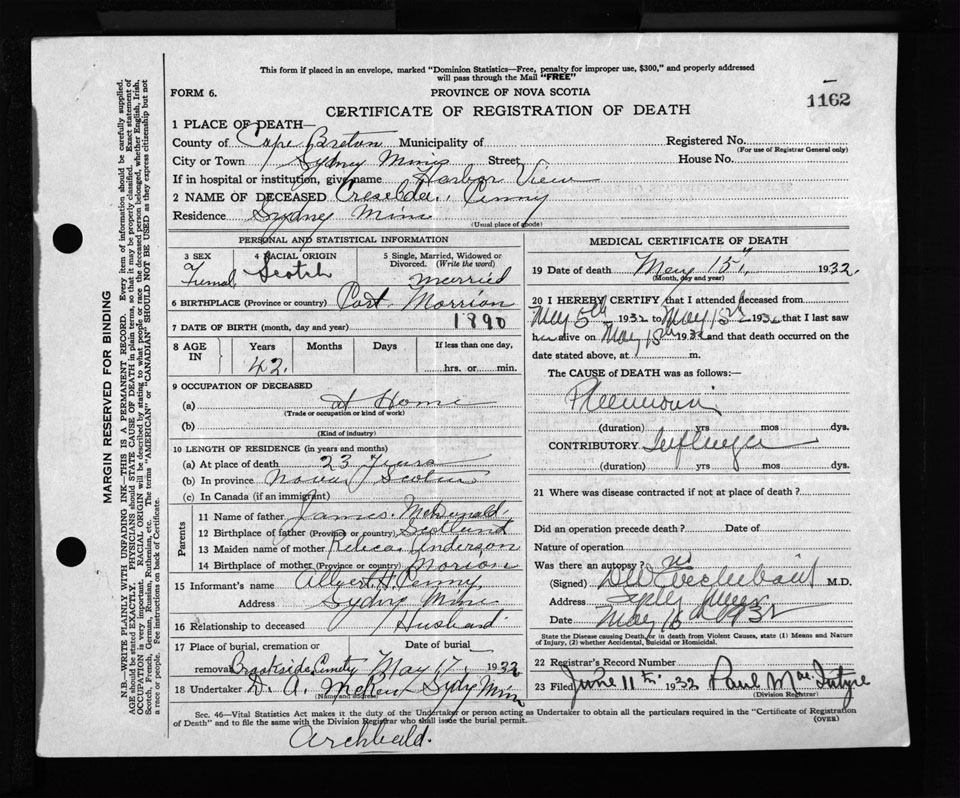 This form if placed in an envelope, marked "Dominion Statistics—Free, penalty for improper use, $300," and properly addressed
will pass through the Mail "FREE"
FORM 6.
PROVINCE OF NOVA SCOTIA
1162
CERTIFICATE OF REGISTRATION OF DEATH
1 PLACE OF DEATH—
County of Cape Breton Municipality of Registered No.
(For use of Registrar General only)
City or Town Sydney Mines Street House No.
If in hospital or institution, give name Harbor View
2 NAME OF DECEASED Penny
Residence Sydney Mines
(Usual place of abode)
PERSONAL AND STATISTICAL INFORMATION
3 SEX 4 RACIAL ORIGIN 5 Single, Married, Widowed or
Divorced. (Write the word)
Femal Scotch Married
6 BIRTHPLACE (Province or country) Port Morrion
7 DATE OF BIRTH (month, day and year) 1890
8 AGE IN Years Months Days If less than one day,
42. hrs. or min.
9 OCCUPATION OF DECEASED
(a) at Home
(Trade or occupation or kind of work)
(b)
(Kind of industry)
10 LENGTH OF RESIDENCE (in years and months)
(a) At place of death 23 Years
(b) In province Nova Scotia
(c) In Canada (if an immigrant)
Parents
11 Name of father James McDonald
12 Birthplace of father (Province or country) Scotland
13 Maiden name of mother Anderson
14 Birthplace of mother (Province or country) Morion
15 Informant's name Albert H. Penny
Address Sydney Mines
16 Relationship to deceased Husband
17 Place of burial, cremation or Date of burial
removal Brookside May 17, 1932
18 Undertaker D. A. Sydy Min
(Name and address)
MEDICAL CERTIFICATE OF DEATH
19 Date of death May 15th, 1932.
(Month, day and year)
20 I HEREBY CERTIFY that I attended deceased from
May 5th 1932 to May 15th 1932 that I last saw
her alive on May 15th 1932 and that death occurred on the
date stated above, at m.
The CAUSE of DEATH was as follows:—
Pneumonia
(duration) yrs mos. dys.
CONTRIBUTORY Influenza
(duration) yrs mos. dys.
21 Where was disease contracted if not at place of death?
Did an operation precede death? Date of
Nature of operation
Was there an autopsy? no
(Signed) Archibald M.D.
Address Sydney Mines
Date May 16th 1932
State the Disease causing Death, or in death from Violent Causes, state (1) Means and Nature
of Injury, (2) whether Accidental, Suicidal or Homicidal.
22 Registrar's Record Number
23 Filed June 11th. 1932 Paul MacIntyre
(Division Registrar)
Sec. 46—Vital Statistics Act makes it the duty of the Undertaker or person acting as Undertaker to obtain all the particulars required in the "Certificate of Registration
of Death" and to file the same with the Division Registrar who shall issue the burial permit. (OVER)
Archbald.
MARGIN RESERVED FOR BINDING
N.B.—WRITE PLAINLY WITH UNFADING INK—THIS IS A PERMANENT RECORD. Every item of information should be carefully supplied.
AGE should be stated EXACTLY. PHYSICIANS should STATE CAUSE OF DEATH in plain terms, so that it may be properly classified. Exact statement of
OCCUPATION is very important. RACIAL ORIGIN will be described by stating to what people or race the deceased person belonged, whether English, Irish,
Scotch, French, German, Russian, Ruthenian, etc. The terms "AMERICAN" or "CANADIAN" SHOULD NOT BE USED as they express citizenship but not
a race or people. Fee instructions on back of Certificate.